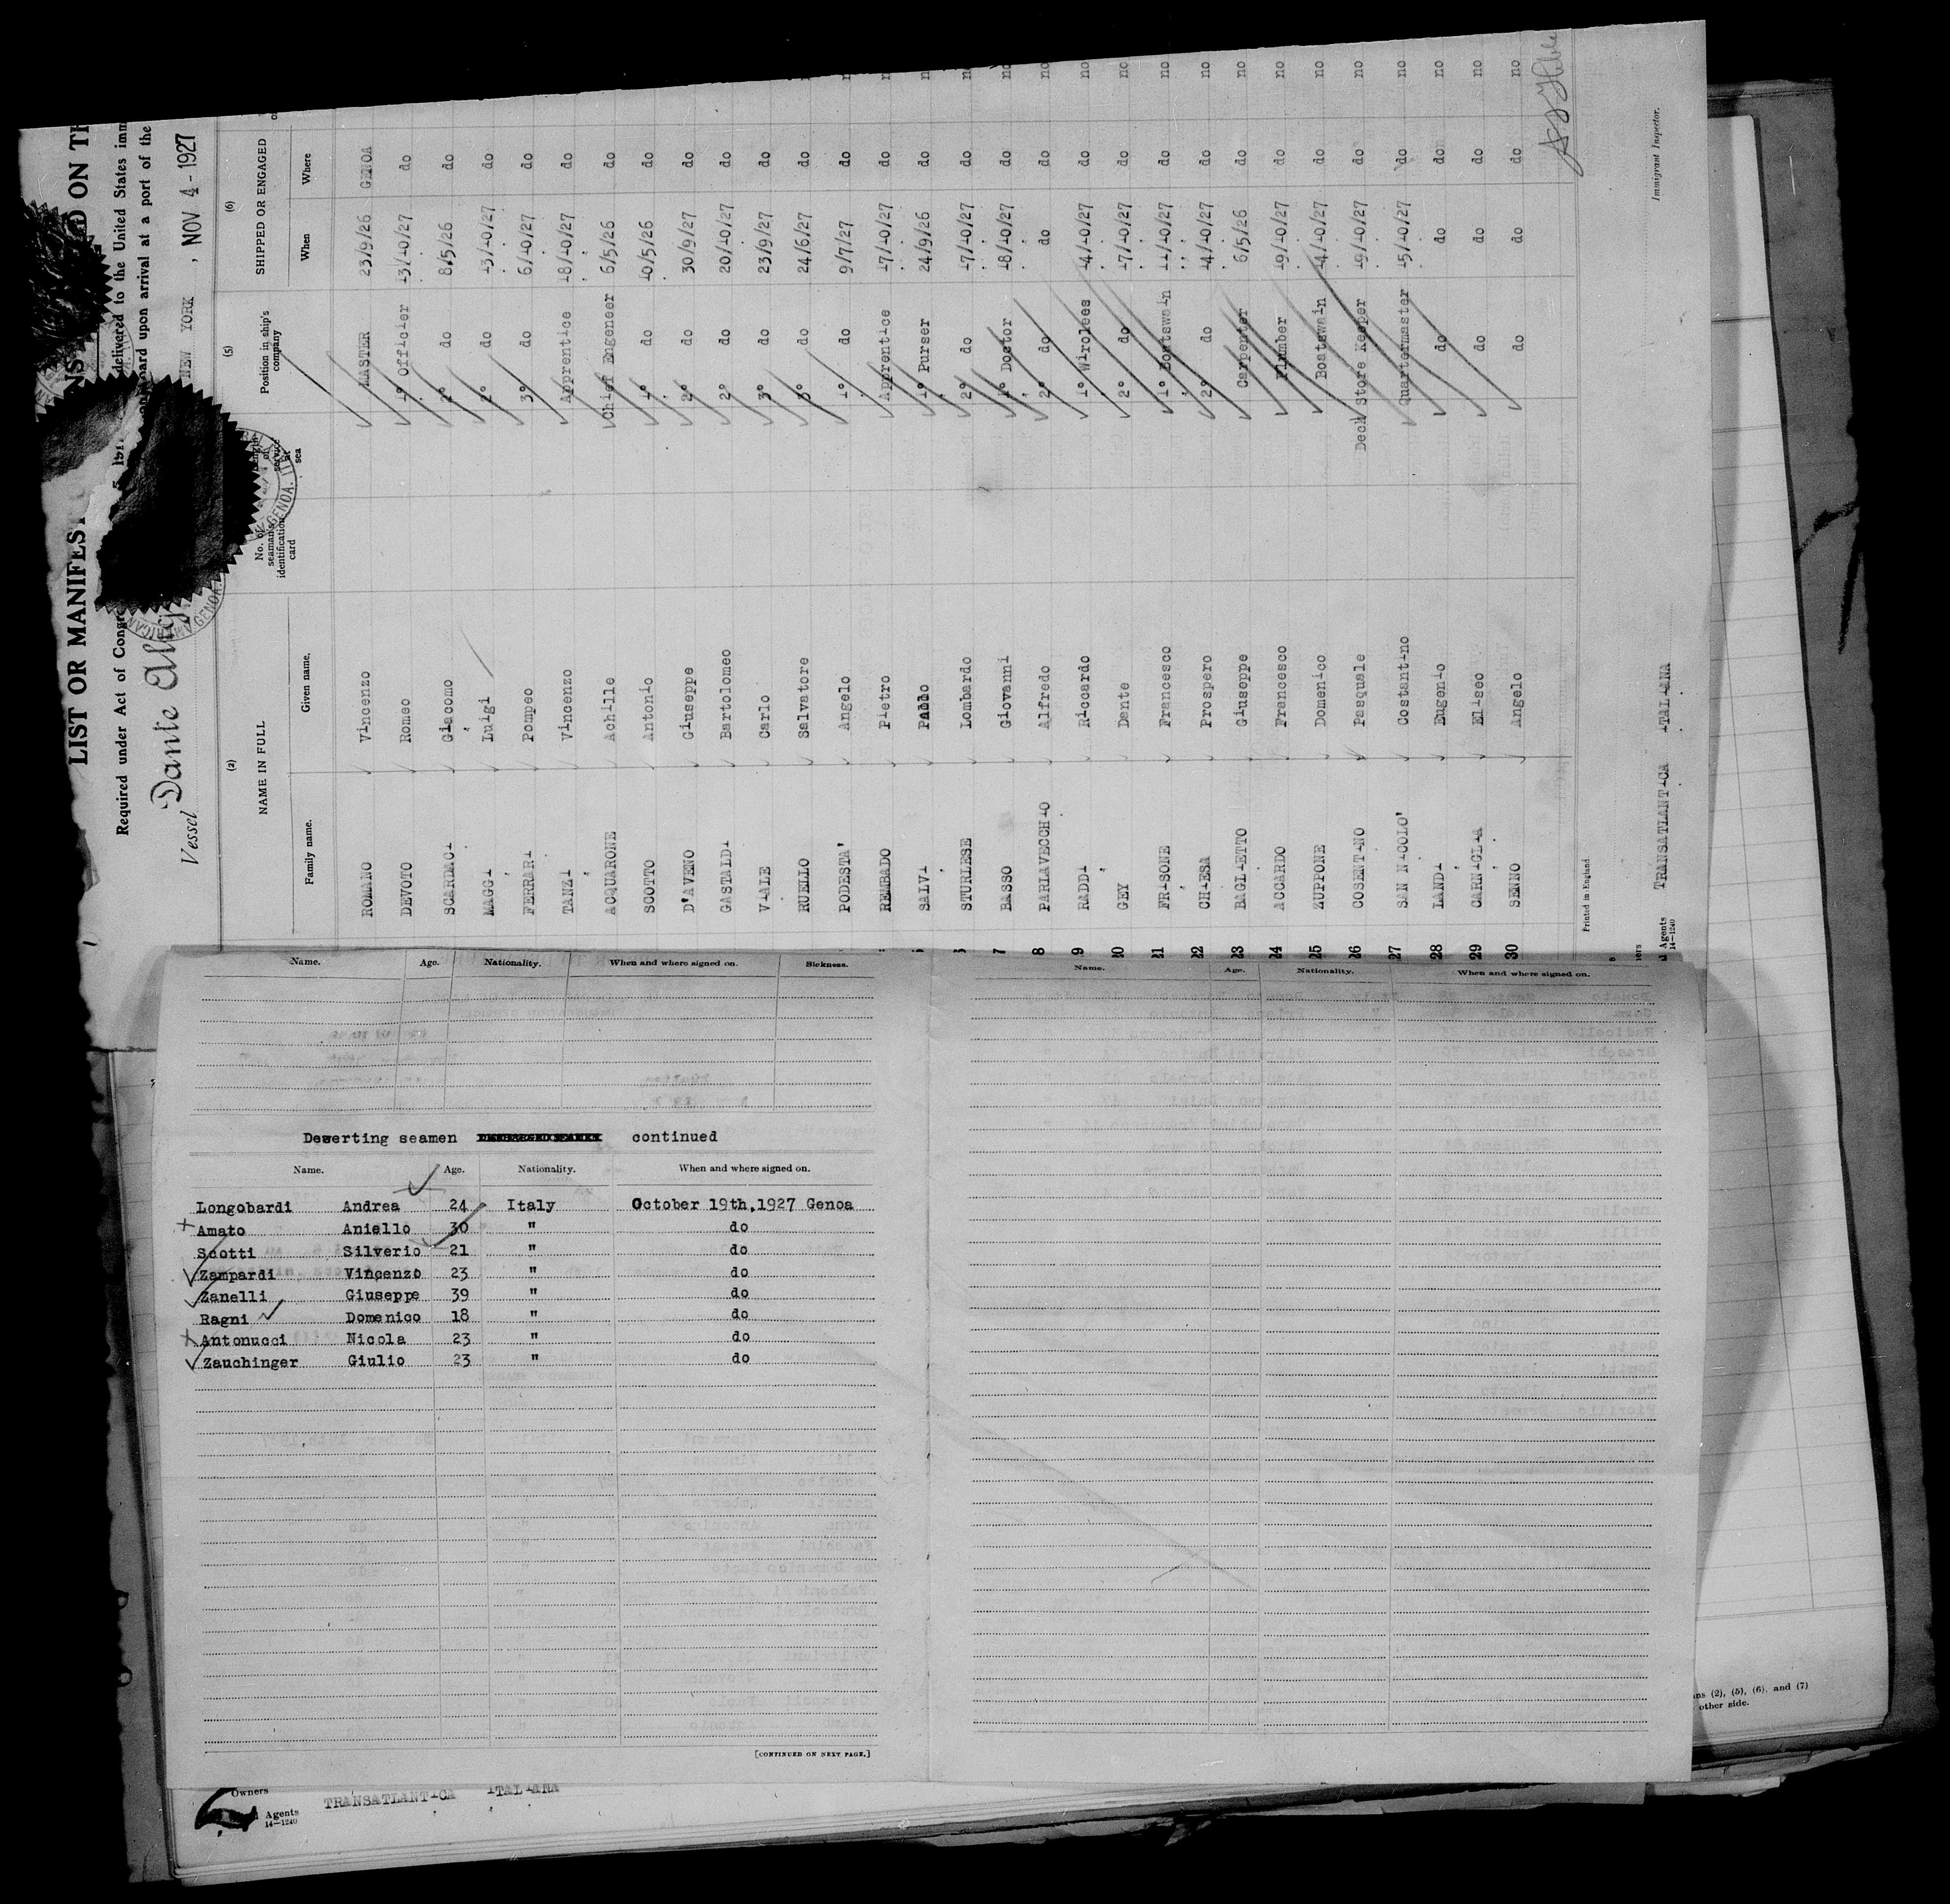 LIST OR MANIFES
NS
D ON TH
Required under Act of Congr
delivered to the United States imm
board upon arrival at a port of the
Vessel Dante Ali
NEW YORK , NOV 4 - 1927
(2) (5) (6)
NAME IN FULL No. of seaman's identification card Length of service at sea Position in ship's company SHIPPED OR ENGAGED
Family name. Given name. When Where
ROMANO Vincenzo MASTER 23/9/26 GENOA
DEVOTO Romeo 1° Officier 13/10/27 do no
SCARDACI Giacomo 2° do 8/5/26 do
MAGGI Luigi 2° do 13/10/27 do
FERRARI Pompeo 3° do 6/10/27 do
TANZI Vincenzo Apprentice 18/10/27 do
ACQUARONE Achille Chief Engeneer 6/5/26 do
SCOTTO Antonio 1° do 10/5/26 do
D'AVENO Giuseppe 2° do 30/9/27 do
GASTALDI Bartolomeo 2° do 20/10/27 do
VIALE Carlo 3° do 23/9/27 do
RUELLO Salvatore 3° do 24/6/27 do
PODESTA' Angelo 1° do 9/7/27 do
REMBADO Pietro Apprentice 17/10/27 do
SALVI Paolo 1° Purser 24/9/26 do
STURLESE Lombardo 2° do 17/10/27 do no
7 BASSO Giovanni 1° Doctor 18/10/27 do no
8 PARLAVECCHIO Alfredo 2° do do do no
9 RADDI Riccardo 1° Wirolees 14/10/27 do no
10 GEY Dante 2° do 17/10/27 do no
11 FRISONE Francesco 1° Boatswain 11/10/27 do no
22 CHIESA Prospero 2° do 14/10/27 do no
23 BAGLIETTO Giuseppe Carpenter 6/5/26 do no
24 ACCARDO Francesco Plumber 19/10/27 do no
25 ZUPPONE Domenico Boatswain 14/10/27 do no
26 COSENTINO Pasquale Deck Store Keeper 19/10/27 do no
27 SAN NICOLO' Costantino Quartermaster 15/10/27 do no
28 LANDI Eugenio do do do no
29 CARNIGLIA Eliseo do do do no
30 SENNO Angelo do do do no
Printed in England
Immigrant Inspector.
Agents TRANSATLANTICA ITALIANA
14—1240
Name. Age. Nationality. When and where signed on. Sickness.
Name. Age. Nationality. When and where signed on.
Deserting seamen continued
Name. Age. Nationality. When and where signed on.
Longobardi Andrea 24 Italy October 19th,1927 Genoa
Amato Aniello 30 " do
Scotti Silverio 21 " do
Zampardi Vincenzo 23 " do
Zanelli Giuseppe 39 " do
Ragni Domenico 18 " do
Antonucci Nicola 23 " do
Zauchinger Giulio 23 " do
[CONTINUED ON NEXT PAGE.]
ns (2), (5), (6), and (7)
other side.
Owners
Agents TRANSATLANTICA ITALIANA
14—1240